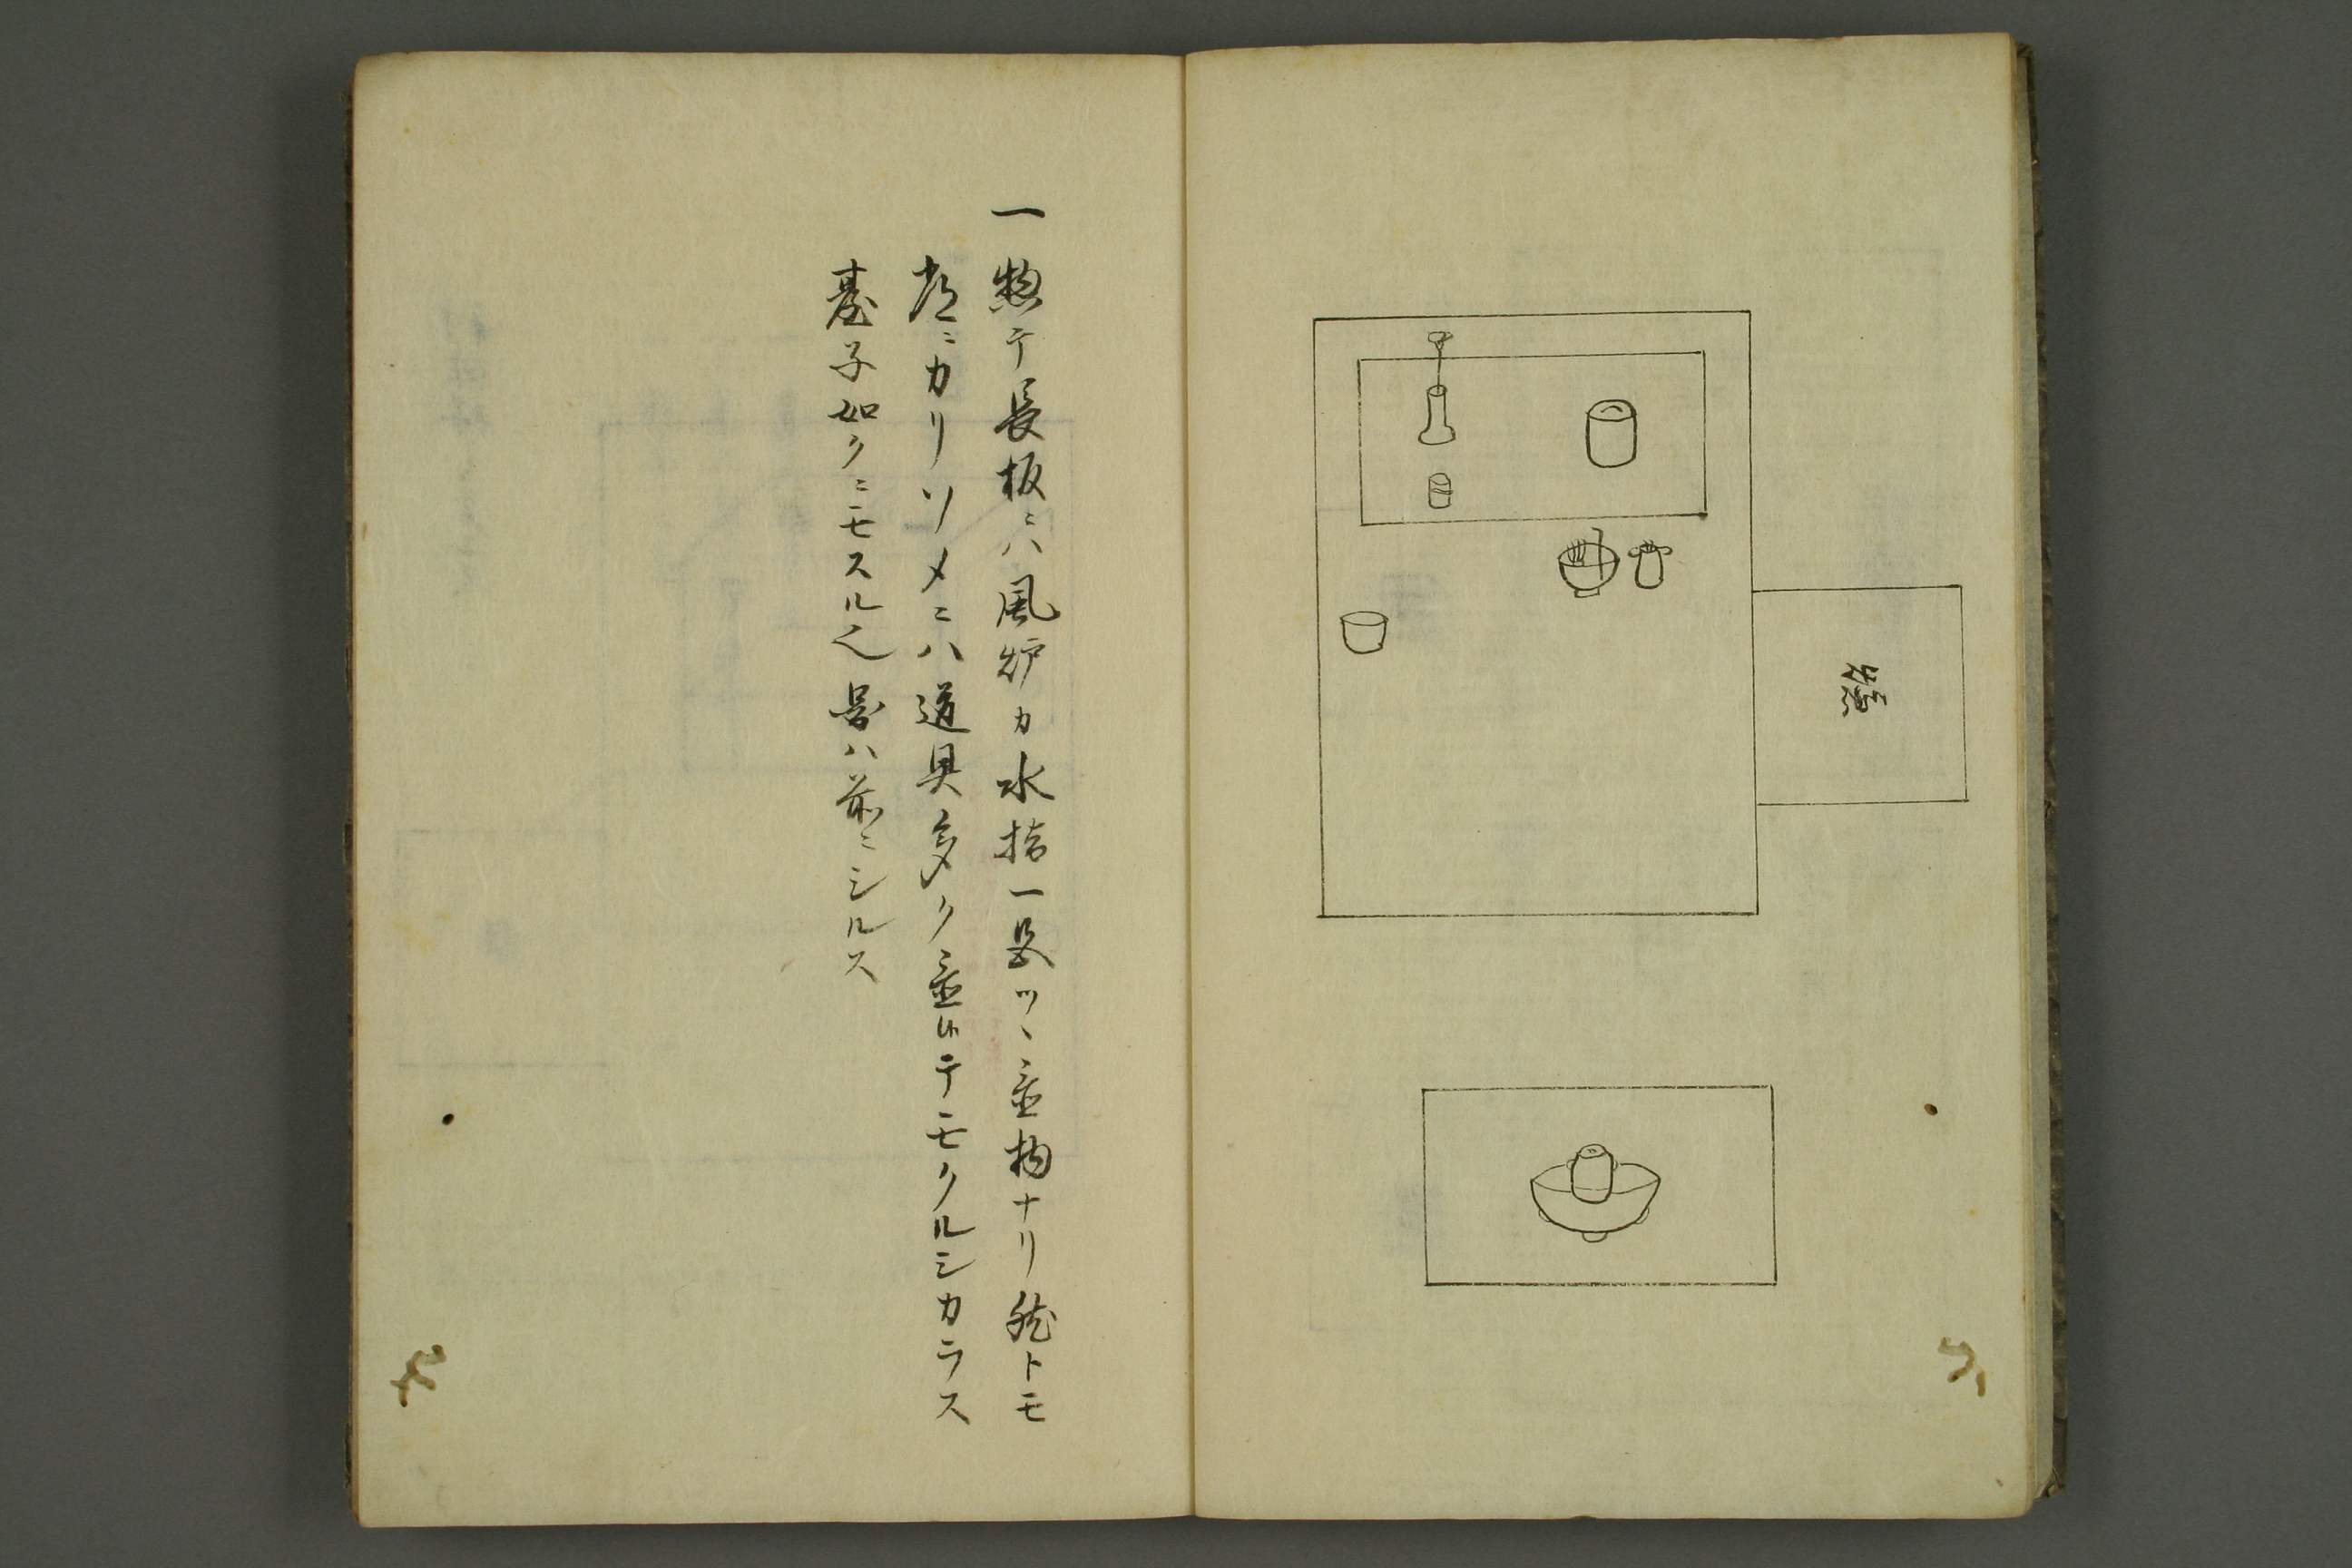 爐
一 惣テ長板ニハ風炉カ水指一ツヽ置物ナリ然トモ
ニカリソメニハ道具多ク置候テモクルシカラス
臺子如クニモスル也圖ハ前ニシルス